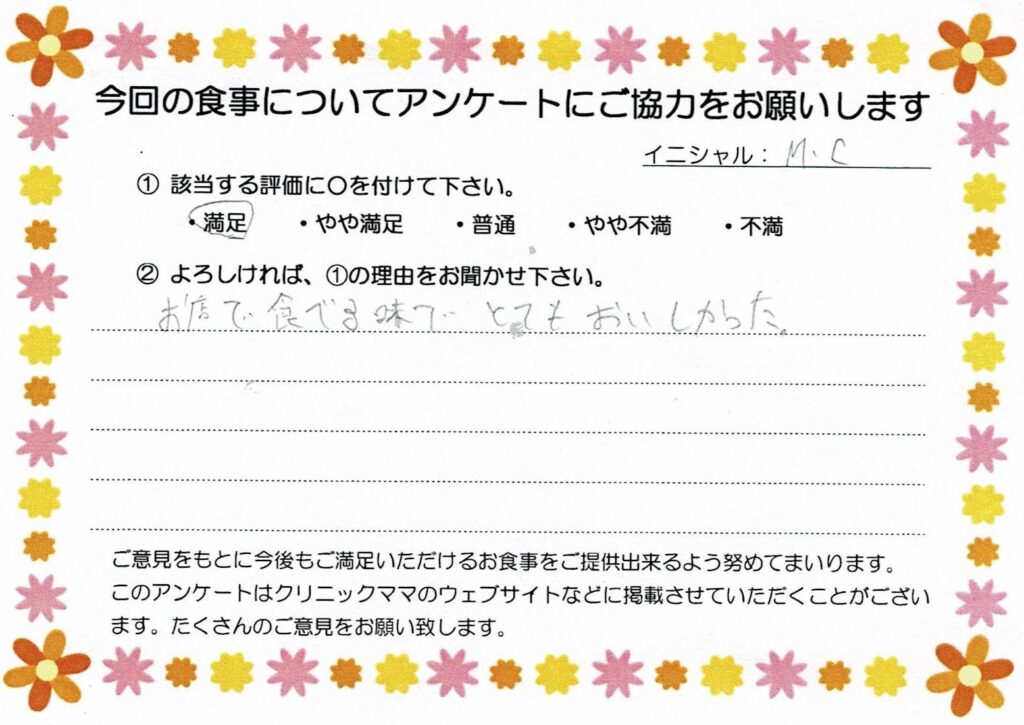 今回の食事についてアンケートにご協力をお願いします
イニシャル： M.C
① 該当する評価に〇を付けて下さい。
・満足 ・やや満足 ・普通 ・やや不満 ・不満
② よろしければ、①の理由をお聞かせ下さい。
お店で食べる味でとてもおいしかった。
ご意見をもとに今後もご満足いただけるお食事をご提供出来るよう努めてまいります。
このアンケートはクリニックママのウェブサイトなどに掲載させていただくことがござい
ます。たくさんのご意見をお願い致します。